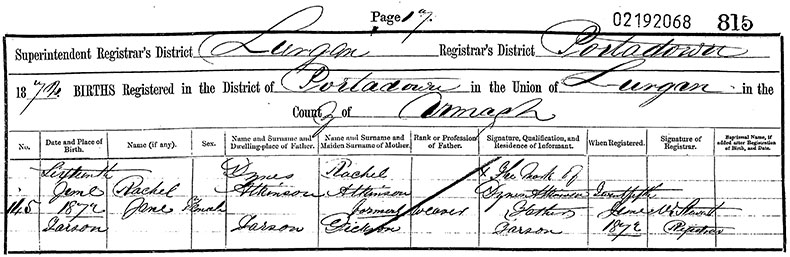 Page 17. 02192068 815
Superintendent Registrar's District Lurgan Registrar's District Portadown
1872 BIRTHS Registered in the District of Portadown in the Union of Lurgan in the
County of Armagh
No. Date and Place of Birth. Name (if any). Sex. Name and Surname and Dwelling-place of Father. Name and Surname and Maiden Surname of Mother. Rank or Profession of Father. Signature, Qualification, and Residence of Informant. When Registered. Signature of Registrar. Baptismal Name, if added after Registration of Birth, and Date.
Dynes Rachel
June Rachel Atkinson Atkinson X The Mark of
145 1872 Jane Female formerly Weaver Dynes Atkinson
Tarson Tarson Dickson Father June
Tarson 1872 Registrar